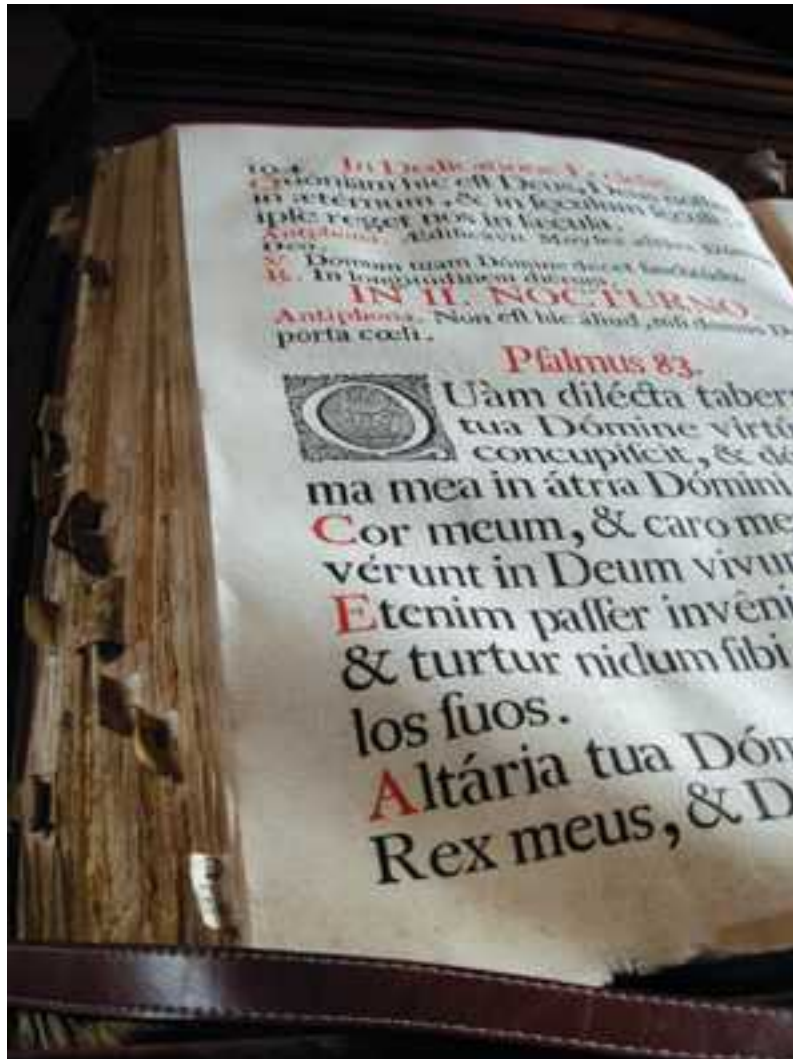 104. In Dedicatione Ecclesiæ.
Quoniam hic eſt Deus, Deus noſte
in æternum, & in ſæculum ſæculi:
ipſe reget nos in ſæcula.
Antiphona. Ædificavit Moyſes altare Dómi
Deo.
V. Domum tuam Dómine decet ſanctitúdo.
R. In longitúdinem diérum.
IN II. NOCTURNO.
Antiphona. Non eſt hic áliud, niſi domus D
porta cœli.
Pſalmus 83.
QUàm dilécta taber
tua Dómine virtú
concupíſcit, & dé
ma mea in átria Dómini
Cor meum, & caro me
vérunt in Deum vivu
Etenim paſſer invêni
& turtur nidum ſibi
los ſuos.
Altária tua Dóm
Rex meus, & D